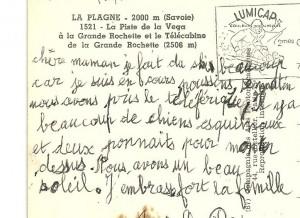 LA PLAGNE - 2000 m (Savoie)
1521 - La Piste de la Vega
à la Grande Rochette et le Télécabine
de la Grande Rochette (2508 m)
LUMICAP
chère maman je fait du ski beaucoup
car je suis en cours poussins,
nous avons pris le téléférique il y a
beaucoup de chiens esquimaux
et deux ponnait pour monter
dessus. Nous avons un beau
soleil. J'embrasse fort la famille